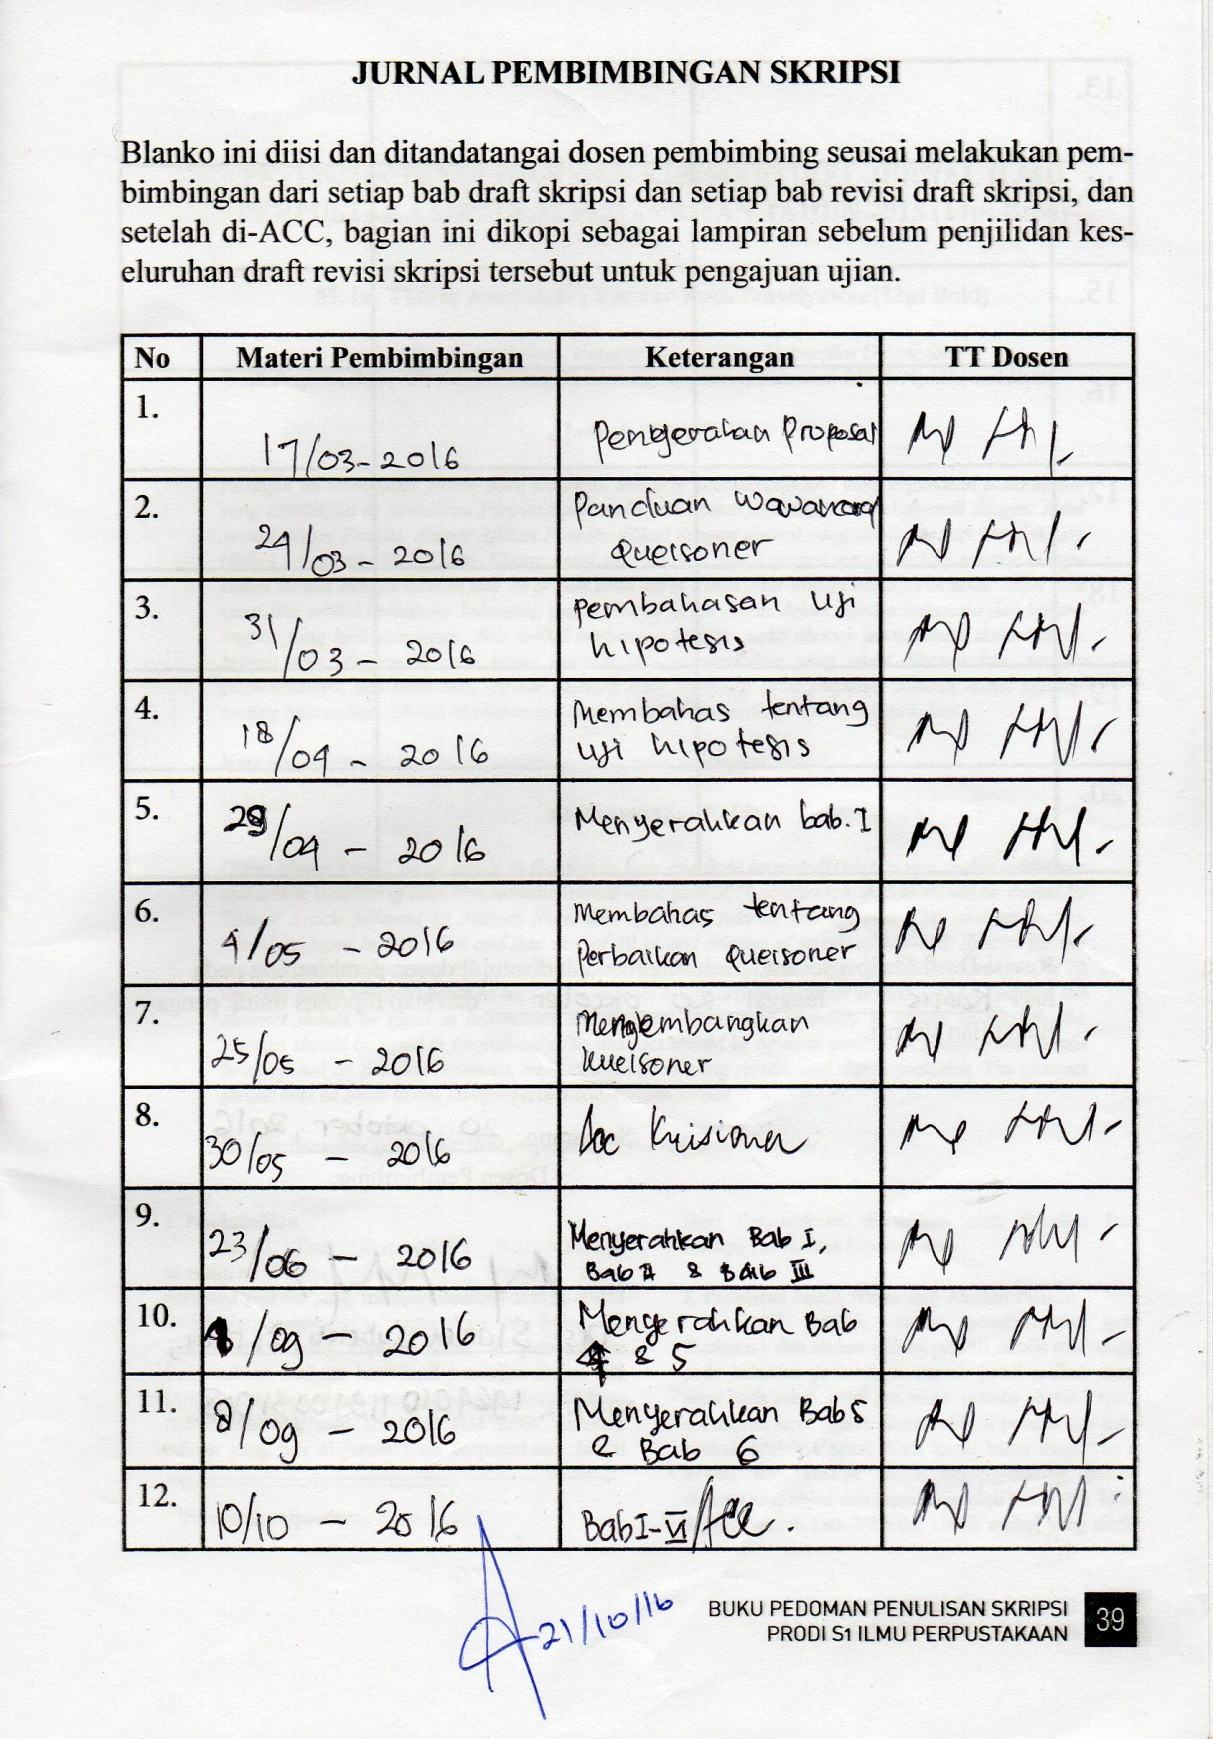 JURNAL PEMBIMBINGAN SKRIPSI
Blanko ini diisi dan ditandatangai dosen pembimbing seusai melakukan pem-
bimbingan dari setiap bab draft skripsi dan setiap bab revisi draft skripsi, dan
setelah di-ACC, bagian ini dikopi sebagai lampiran sebelum penjilidan kes-
eluruhan draft revisi skripsi tersebut untuk pengajuan ujian.
No Materi Pembimbingan Keterangan TT Dosen
1.
17/03-2016 Penyerahan Proposal
2. Panduan wawancara
24/03 - 2016 Queisoner
3. Pembahasan Uji
31/03 - 2016 hipotesis
4. Membahas tentang
18/04 - 2016 uji hipotesis
5. Menyerahkan bab. I
/04 - 2016
6. Membahas tentang
4/05 - 2016 Perbaikan Queisoner
7. Mengembangkan
25/05 - 2016 kueisoner
8.
30/05 - 2016 Acc Kuisioner
9. Menyerahkan Bab I,
23/06 - 2016 Bab II & Bab III
10. Menyerahkan Bab
/09 - 2016 4 & 5
11. Menyerahkan Bab 5
8/09 - 2016 & Bab 6
12.
10/10 - 2016 Bab I-VI / Acc.
21/10/16
BUKU PEDOMAN PENULISAN SKRIPSI
PRODI S1 ILMU PERPUSTAKAAN
39